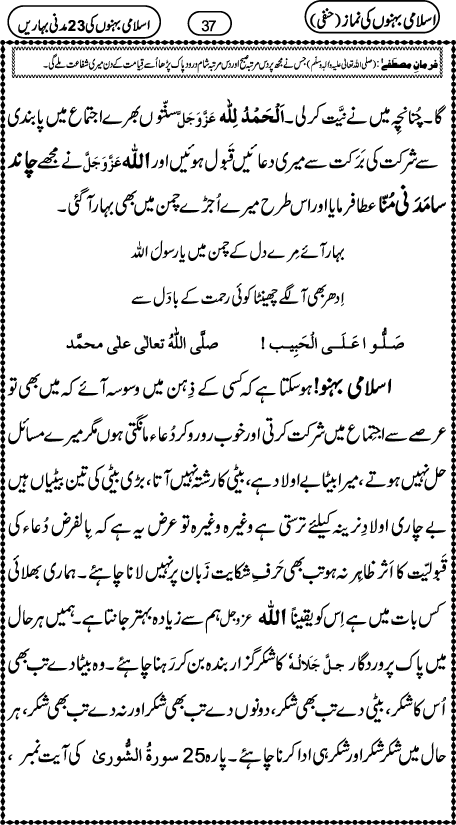 اسلامی بہنوں کی نماز (حنفی)
37
اسلامی بہنوں کی 23 مدنی بہاریں
فرمانِ مصطفےٰ: (صلی اللہ تعالیٰ علیہ والہٖ وسلم) جس نے مجھ پر دس مرتبہ صبح اور دس مرتبہ شام درودِ پاک پڑھا اُسے قیامت کے دن میری شفاعت ملے گی۔
گا۔ چُنانچِہ میں نے نیّت کر لی۔ اَلْحَمْدُ لِلّٰہ عَزَّوَجَلَّ سنّتوں بھرے اجتماع میں پابندی
سے شرکت کی بَرَکت سے میری دعائیں قَبول ہوئیں اور اللہ عَزَّوَجَلَّ نے مجھے چاند
سا مَدَنی مُنّا عطا فرمایا اور اس طرح میرے اُجڑے چمن میں بھی بہار آ گئی۔
بہار آئے مِرے دل کے چمن میں یا رسولَ اللہ
اِدھر بھی آ لگے چھینٹا کوئی رحمت کے بادَل سے
صَلُّوا عَلَی الْحَبِیب ! صلَّی اللہُ تعالٰی علٰی محمَّد
اسلامی بہنو! ہو سکتا ہے کہ کسی کے ذِہن میں وسوسہ آئے کہ میں بھی تو
عرصے سے اجتِماع میں شرکت کرتی اور خوب رو رو کر دُعاء مانگتی ہوں مگر میرے مسائل
حل نہیں ہوتے، میرا بیٹا بے اولاد ہے، بیٹی کا رشتہ نہیں آتا، بڑی بیٹی کی تین بیٹیاں ہیں
بے چاری اولادِ نرینہ کیلئے ترستی ہے وغیرہ وغیرہ تو عرض یہ ہے کہ بِالفرض دُعاء کی
قَبولیّت کا اَثر ظاہِر نہ ہو تب بھی حَرفِ شکایت زَبان پر نہیں لانا چاہئے۔ ہماری بھلائی
کس بات میں ہے اِس کو یقیناً اللہ عزوجل ہم سے زیادہ بہتر جانتا ہے۔ ہمیں ہر حال
میں پاک پروردگار جلَّ جَلَالُہٗ کا شکر گزار بندہ بن کر رَہنا چاہئے۔ وہ بیٹا دے تب بھی
اُس کا شکر، بیٹی دے تب بھی شکر، دونوں دے تب بھی شکر اور نہ دے تب بھی شکر، ہر
حال میں شکر شکر اور شکر ہی ادا کرنا چاہئے۔ پارہ 25 سورۃُ الشُّوریٰ کی آیت نمبر ،